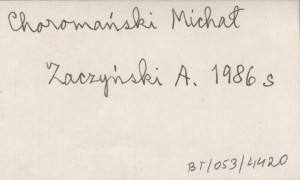 Choromański Michał
Zaczyński A. 1986 s
BT/053/4420